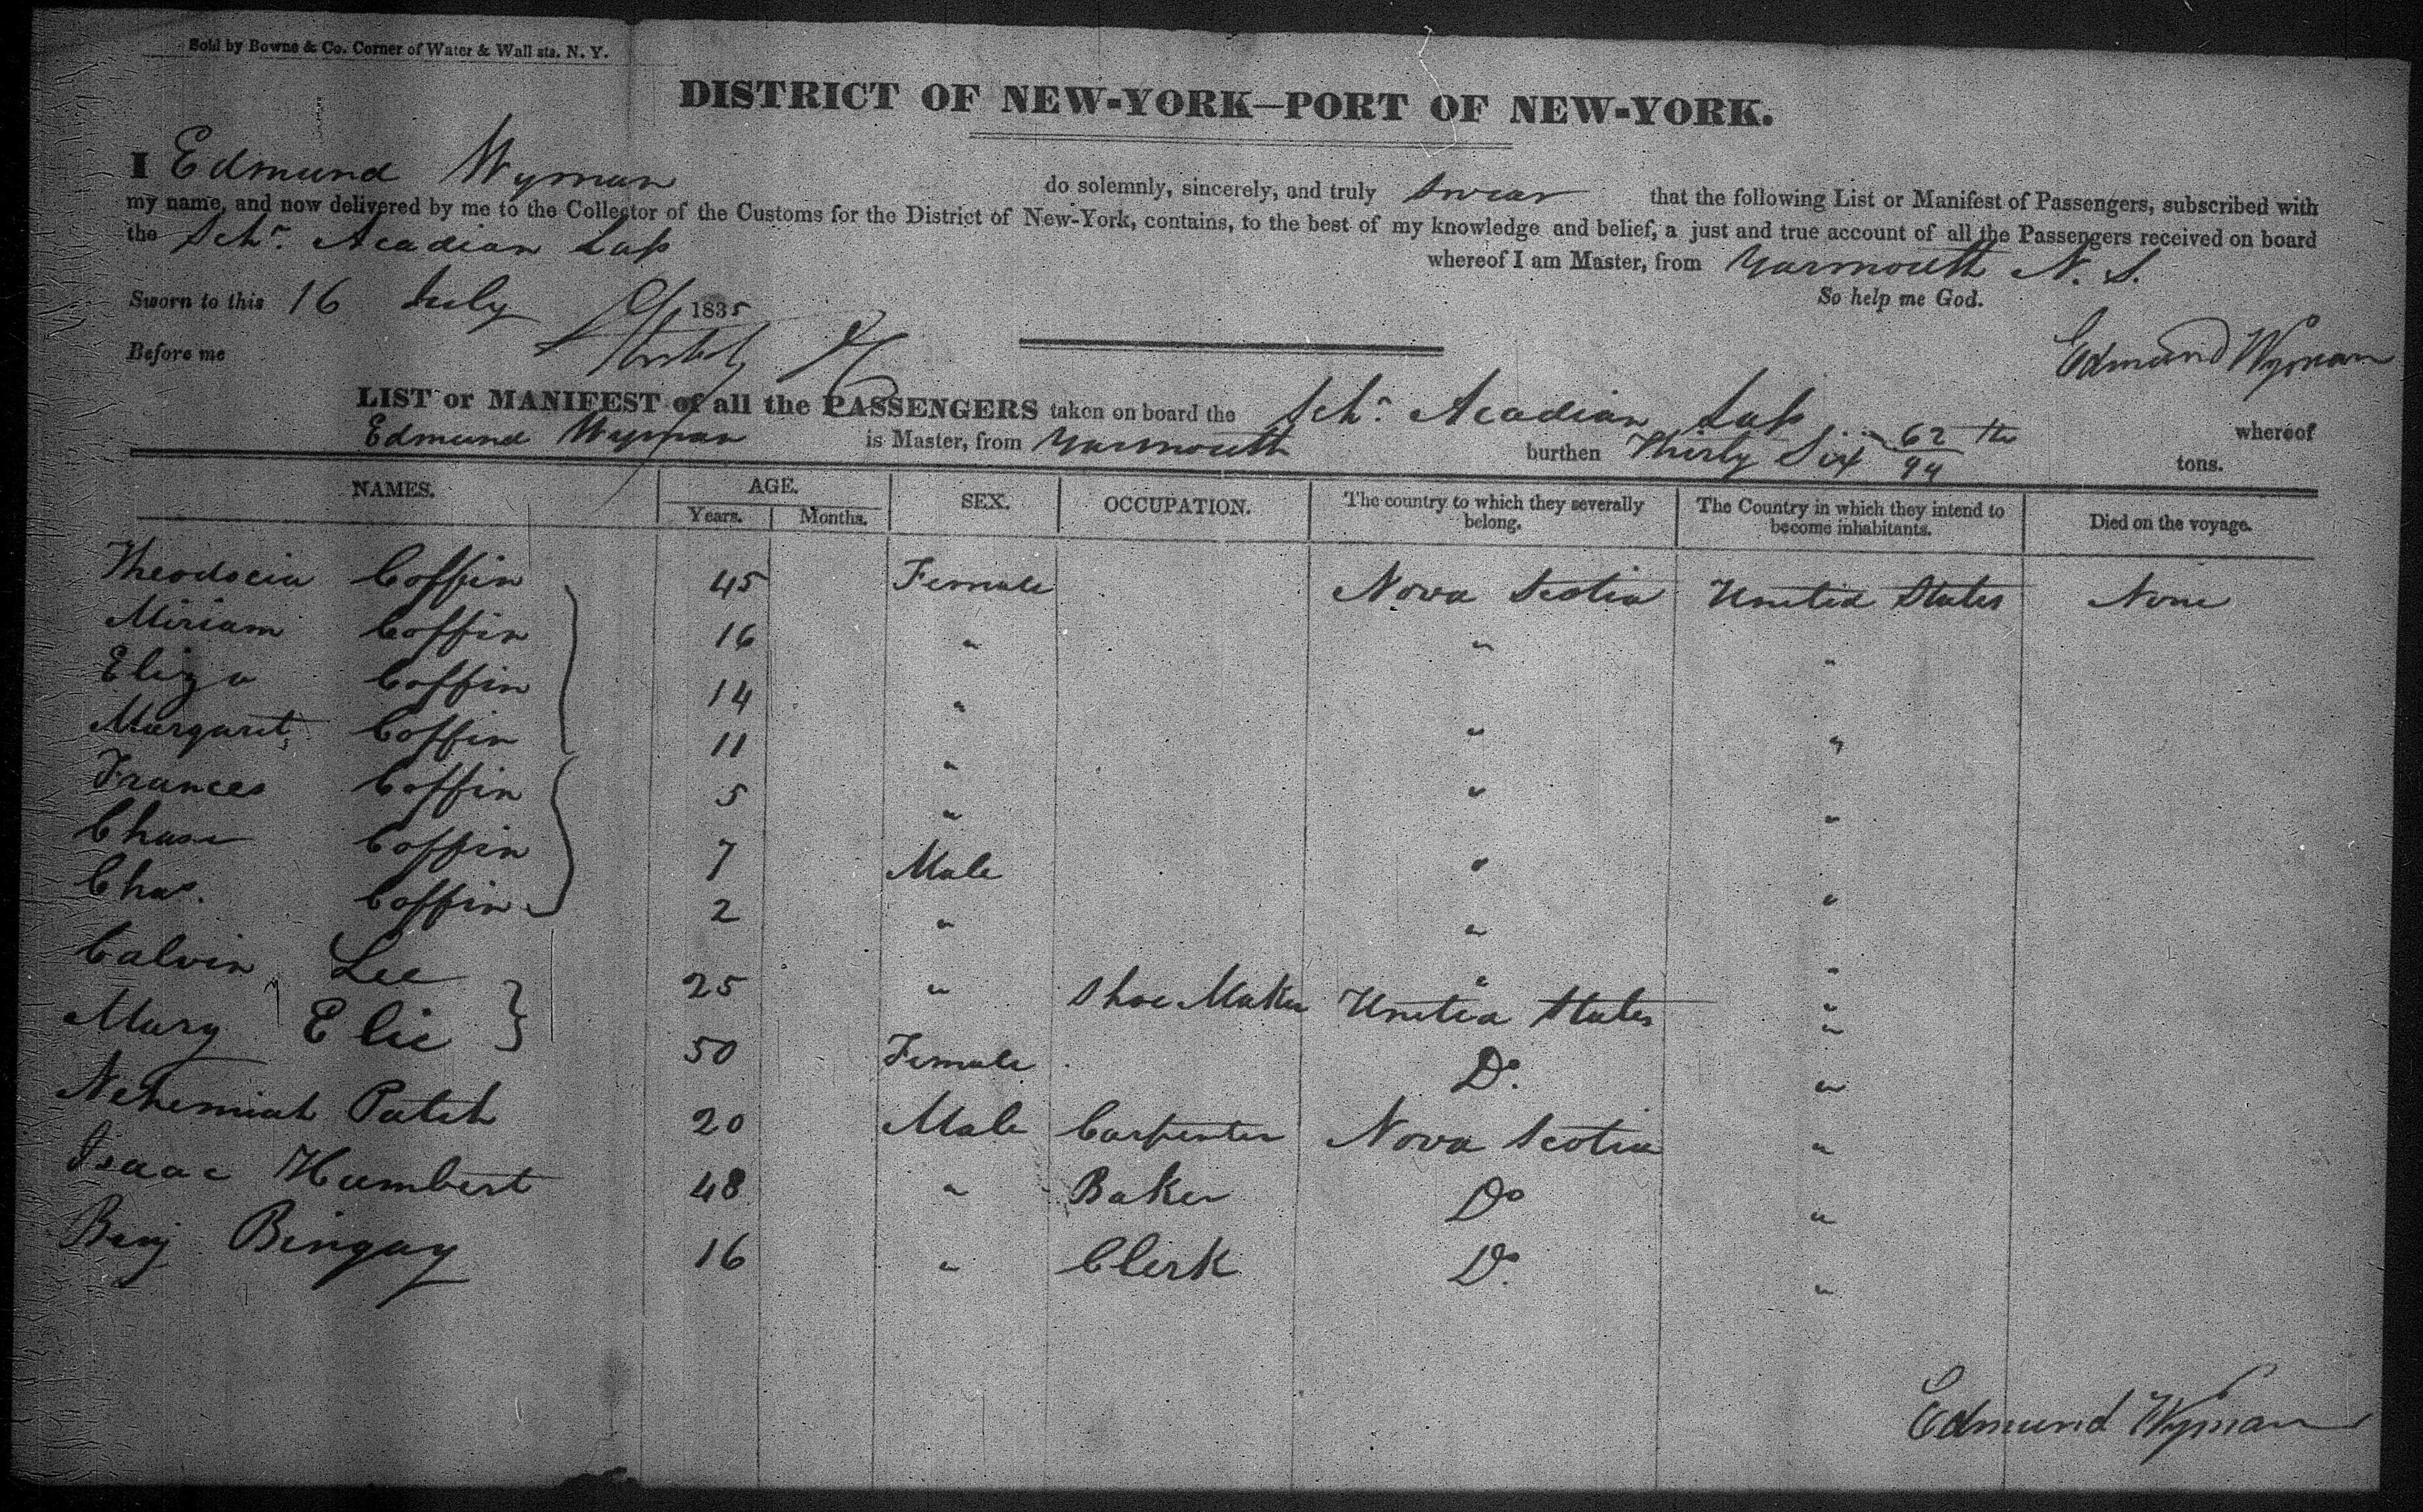 Sold by Bowne & Co. Corner of Water & Wall sts. N. Y.
DISTRICT OF NEW-YORK—PORT OF NEW-YORK.
I Edmund Wyman do solemnly, sincerely, and truly swear that the following List or Manifest of Passengers, subscribed with
my name, and now delivered by me to the Collector of the Customs for the District of New-York, contains, to the best of my knowledge and belief, a just and true account of all the Passengers received on board
the Schr. Acadian Lass whereof I am Master, from Yarmouth N. S.
Sworn to this 16 July 1835 So help me God.
Before me Edmund Wyman
LIST or MANIFEST of all the PASSENGERS taken on board the Schr. Acadian Lass whereof
Edmund Wyman is Master, from Yarmouth burthen Thirty Six 62/94 tons.
NAMES. AGE. SEX. OCCUPATION. The country to which they severally belong. The Country in which they intend to become inhabitants. Died on the voyage.
Years. Months.
Theodocia Coffin 45 Female Nova Scotia United States None
Miriam Coffin 16 " " "
Eliza Coffin 14 " " "
Margaret Coffin 11 " " "
Frances Coffin 5 " " "
Chase Coffin 7 Male " "
Chas. Coffin 2 " " "
Calvin Lee 25 " Shoe Maker United States "
Mary Elie 50 Female Do. "
Nehemiah Patch 20 Male Carpenter Nova Scotia "
Isaac Humbert 48 " Baker Do "
Benj Bingay 16 " Clerk Do. "
Edmund Wyman